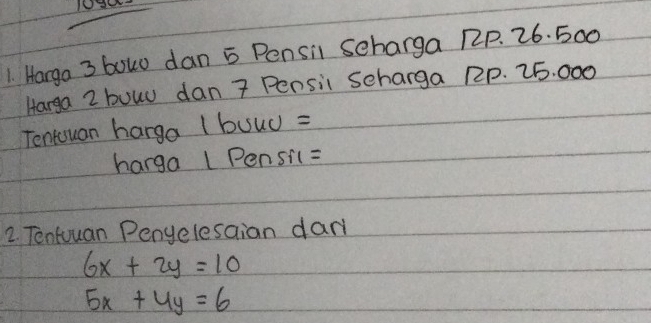 1. Harga 3 buku dan 5 Pensil Seharga Rp. 26.500
Harga 2 buku dan 7 Pensil Seharga Rp. 25.000
Tentukan harga 1 buku =
harga 1 Pensil =
2. Tentukan Penyelesaian dari
6x + 2y = 10
5x + 4y = 6